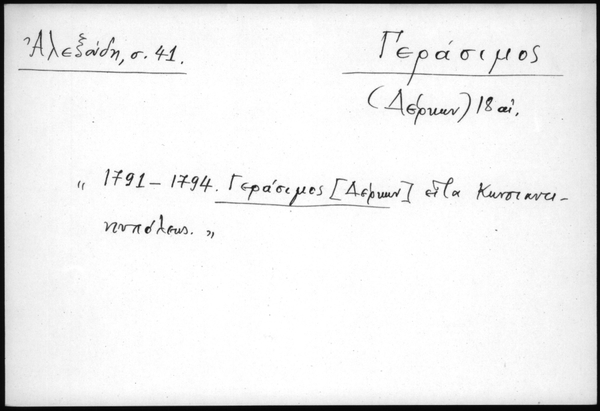 Ἀλεξούδη, σ. 41.
Γεράσιμος
(Δέρκων) 18 αἰ.
„ 1791 – 1794. Γεράσιμος [Δέρκων] εἶτα Κωνσταντι-
νουπόλεως. „